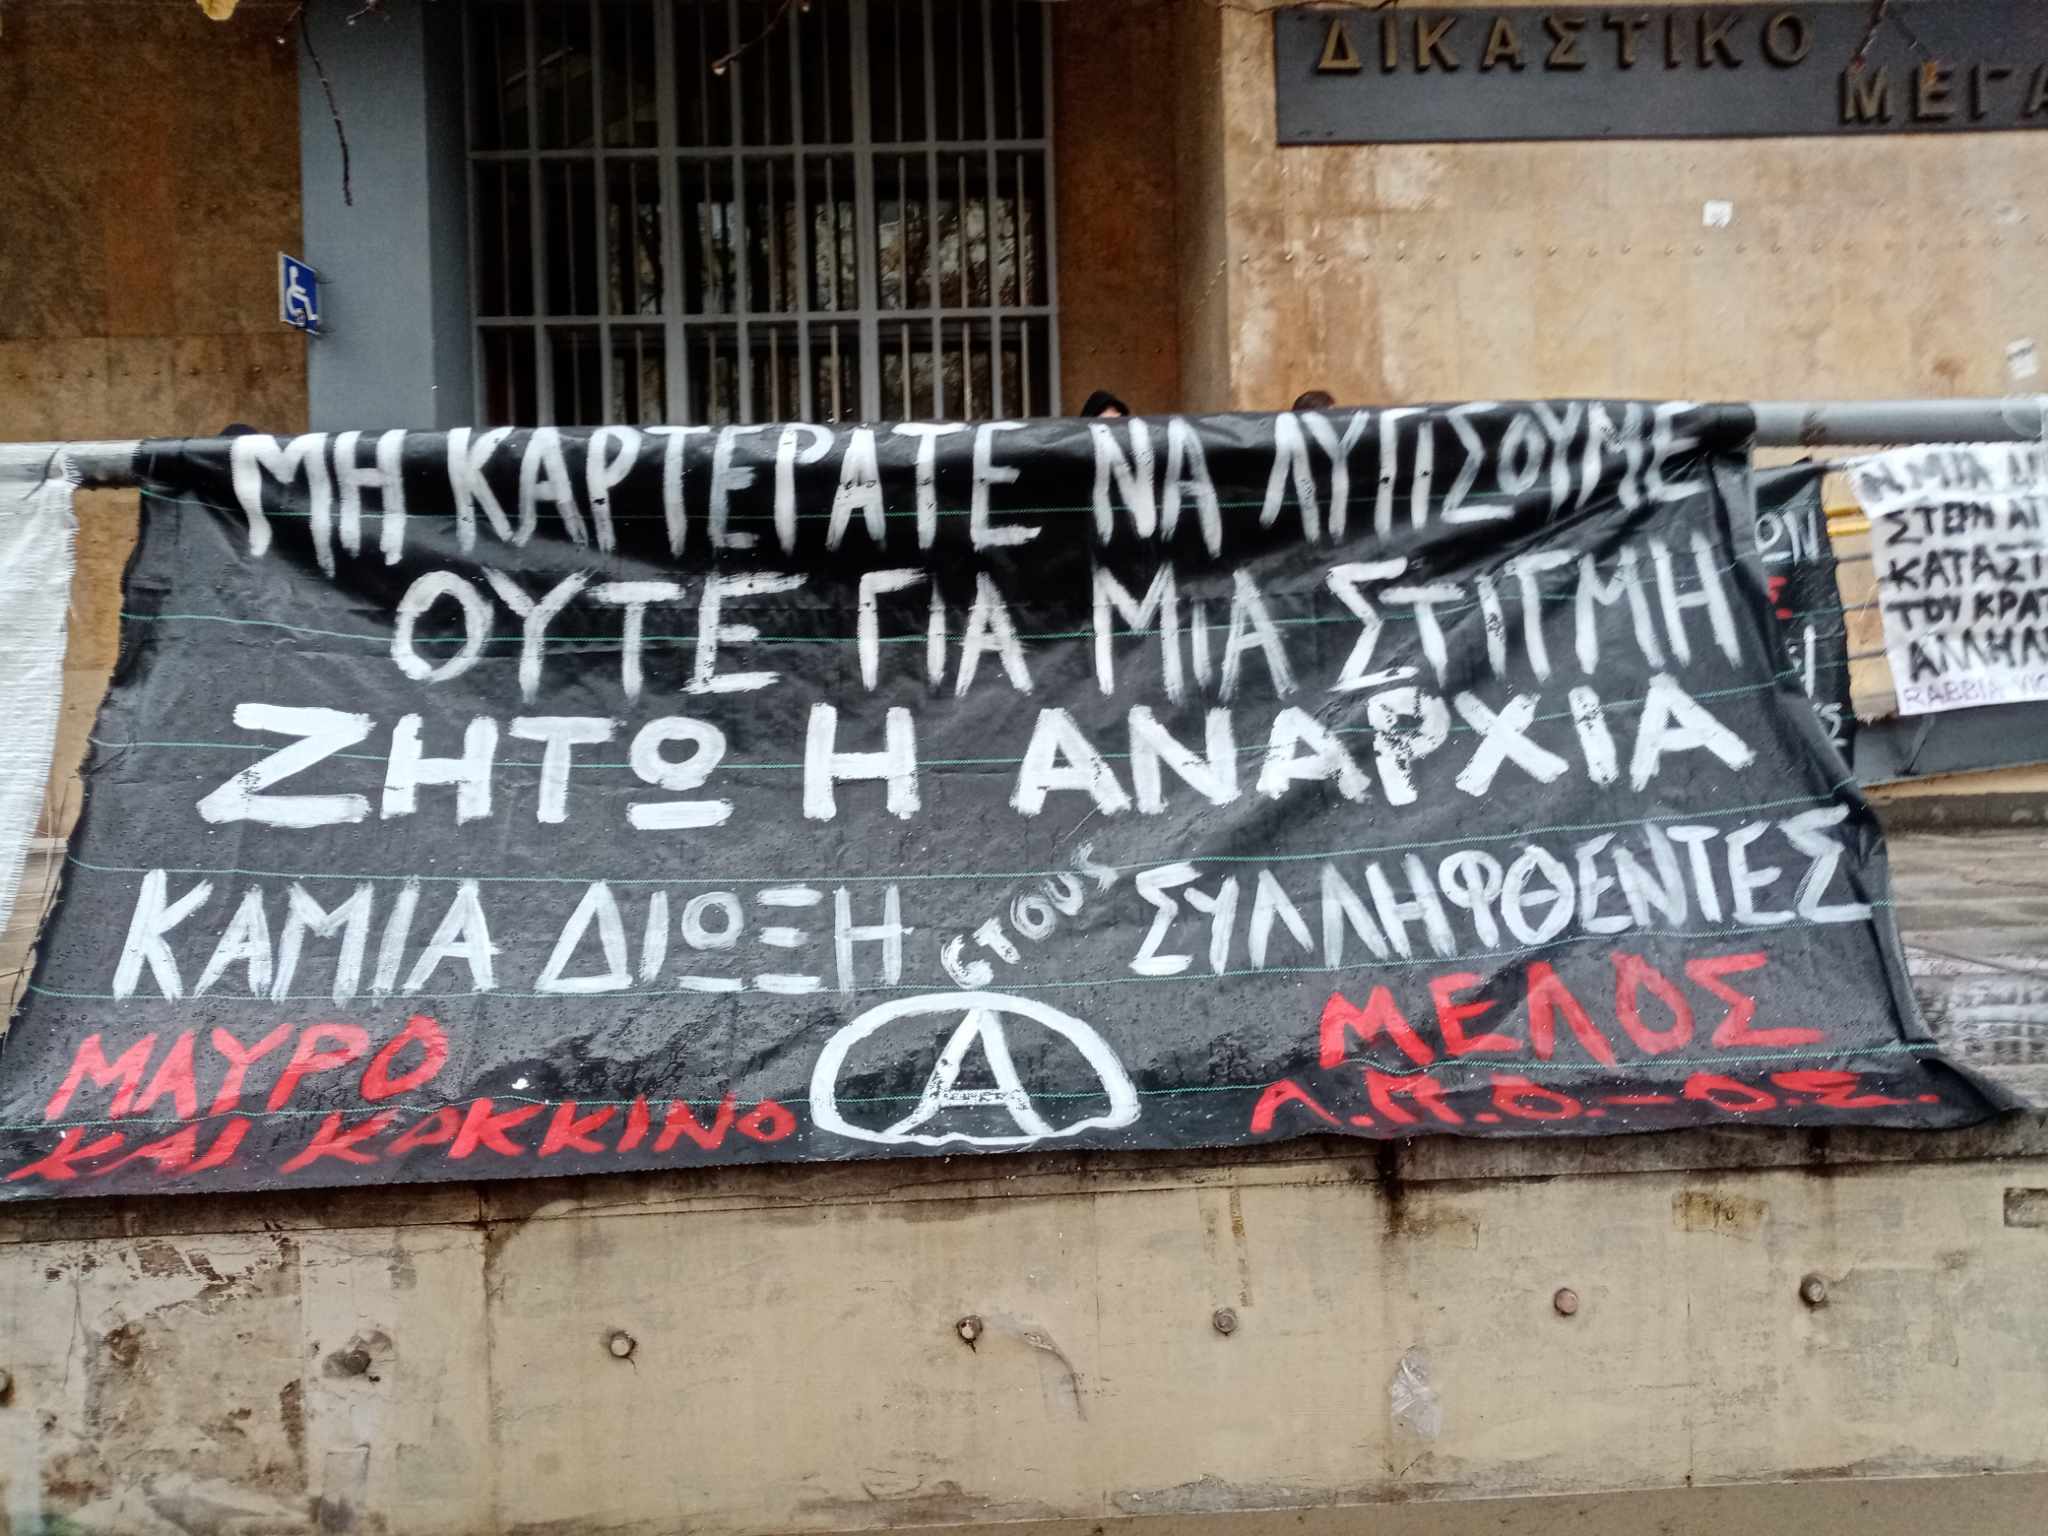 ΔΙΚΑΣΤΙΚΟ
ΜΕΓΑ
ΜΗ ΚΑΡΤΕΡΑΤΕ ΝΑ ΛΥΓΙΣΟΥΜΕ
ΟΥΤΕ ΓΙΑ ΜΙΑ ΣΤΙΓΜΗ
ΖΗΤΩ Η ΑΝΑΡΧΙΑ
ΚΑΜΙΑ ΔΙΩΞΗ στους ΣΥΛΛΗΦΘΕΝΤΕΣ
ΜΑΥΡΟ
ΚΑΙ ΚΟΚΚΙΝΟ
Α
ΜΕΛΟΣ
Α.Π.Ο.-Ο.Σ.
ΩΝ
ΚΑΤΑΣΤ
ΤΟΥ ΚΡΑΤ
ΑΛΛΗΛ
RABBIA